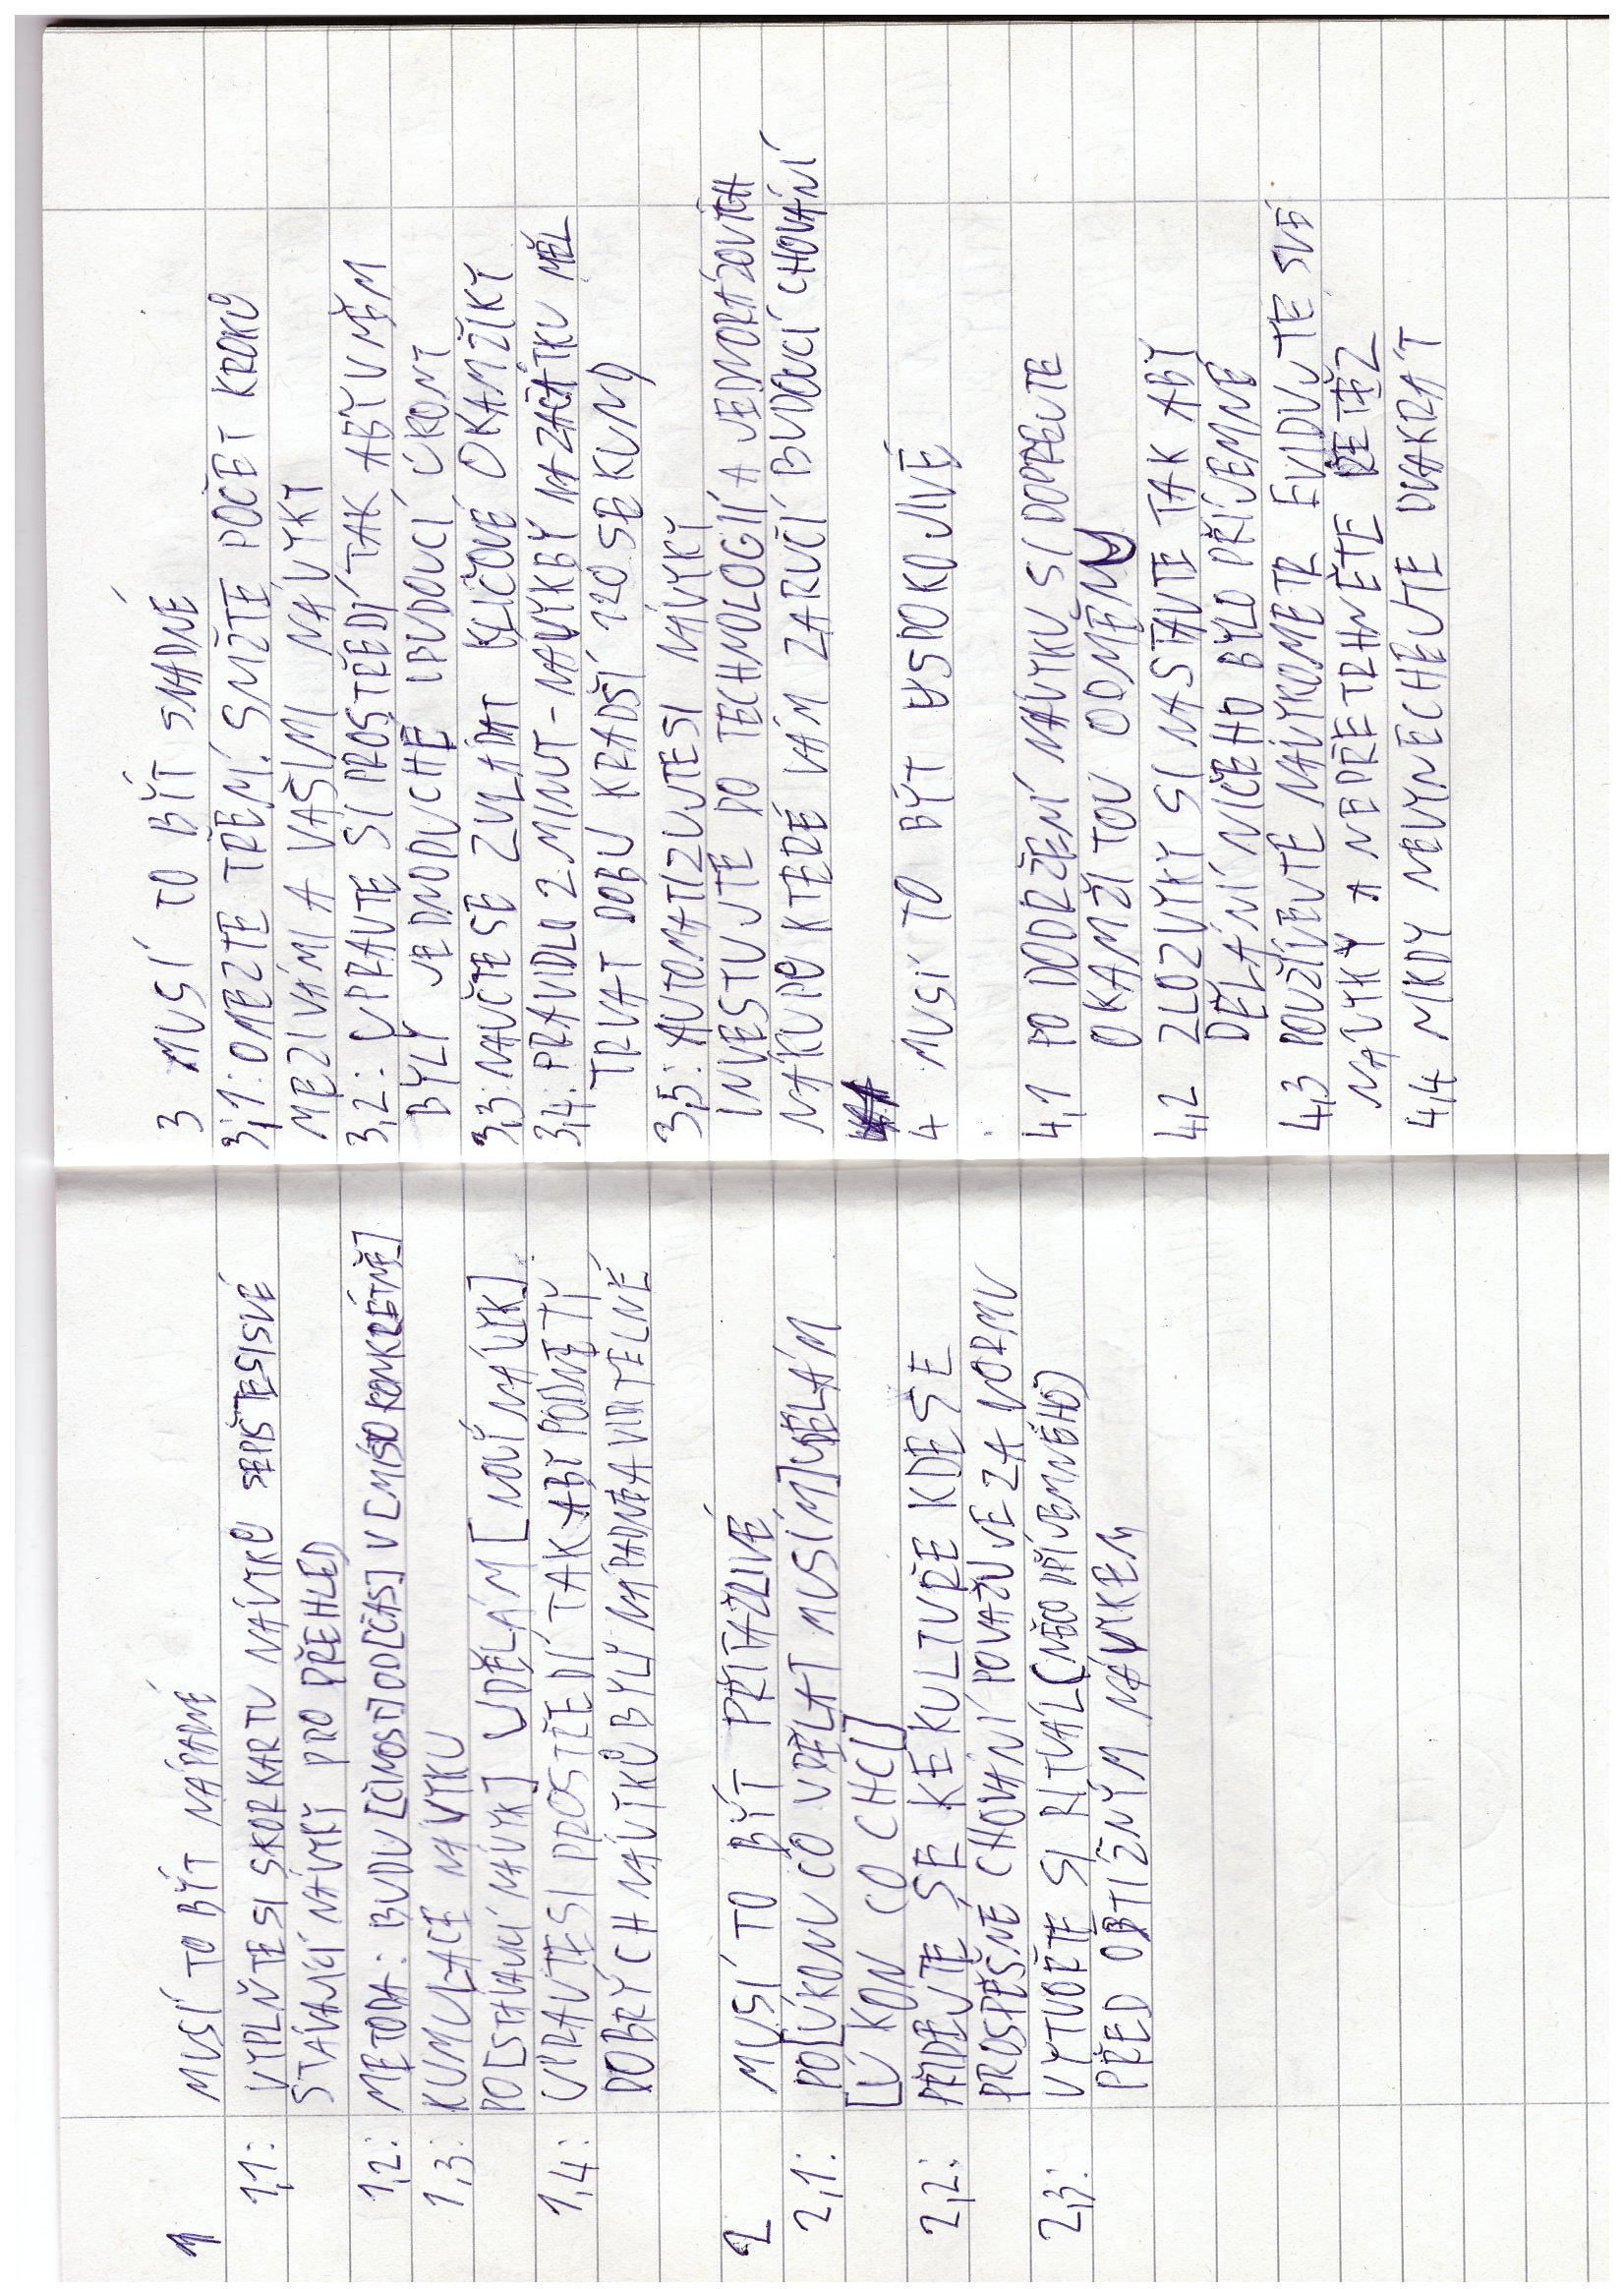 1 MUSÍ TO BÝT NÁPADNÉ
1,1: VYPLŇTE SI SKORKARTU NÁVYKŮ SEPIŠTE SI SVÉ
STÁVAJÍCÍ NÁVYKY PRO PŘEHLED
1,2: METODA: BUDU [ČINOST] OD [ČAS] V [MÍSTO KONKRÉTNĚ]
1,3: KUMULACE NÁVYKU
PO [STÁVAJÍCÍ NÁVYK] UDĚLÁM [NOVÍ NÁVYK].
1,4: UPRAVTE SI PROSTŘEDÍ TAK ABY PODNĚTY
DOBRÝCH NÁVYKŮ BYLY NÁPADNÉ A VIDITELNÉ
2 MUSÍ TO BÝT PŘITAŽLIVÉ
2,1: PO [ÚKONU CO UDĚLAT MUSÍM] UDĚLÁM
[ÚKON CO CHCI]
2,2: PŘIDEJTE SE KE KULTUŘE KDE SE
PROSPĚŠNÉ CHOVÁNÍ POVAŽUJE ZA NORMU
2,3: VYTVOŘTE SI RITUÁL (NĚCO PŘÍJEMNÉHO)
PŘED OBTÍŽNÝM NÁVYKEM
3 MUSÍ TO BÝT SNADNÉ
3,1: OMEZTE TŘENÍ. SNIŽTE POČET KROKŮ
MEZI VÁMI A VAŠIMI NÁVYKY
3,2: UPRAVTE SI PROSTŘEDÍ TAK ABY V NĚM
BYLY JEDNODUCHÉ I BUDOUCÍ ÚKONY
3,3: NAUČTE SE ZVLÁDAT KLÍČOVÉ OKAMŽIKY
3,4: PRAVIDLO 2 MINUT - NÁVYK BY NA ZAČÁTKU MĚL
TRVAT DOBU KRADŠÍ 120 SEKUND
3,5: AUTOMATIZUJTE SI NÁVYKY
INVESTUJTE DO TECHNOLOGIÍ A JEDNORÁZOVÝCH
NÁKUPŮ KTERÉ VÁM ZARUČÍ BUDOUCÍ CHOVÁNÍ
4 MUSÍ TO BÝT USPOKOJIVÉ
4,1 PO DODRŽENÍ NÁVYKU SI DOPŘEJTE
OKAMŽITOU ODMĚNU
4,2 ZLOZVYKY SI NASTAVTE TAK ABY
DĚLÁNÍ NIČEHO BYLO PŘÍJEMNÉ
4,3 POUŽÍVEJTE NÁVYKOMETR EVIDUJTE SVÉ
NÁVYKY A NEPŘETRHNĚTE ŘETĚZ
4,4 NIKDY NEVYNECHEJTE DVAKRÁT